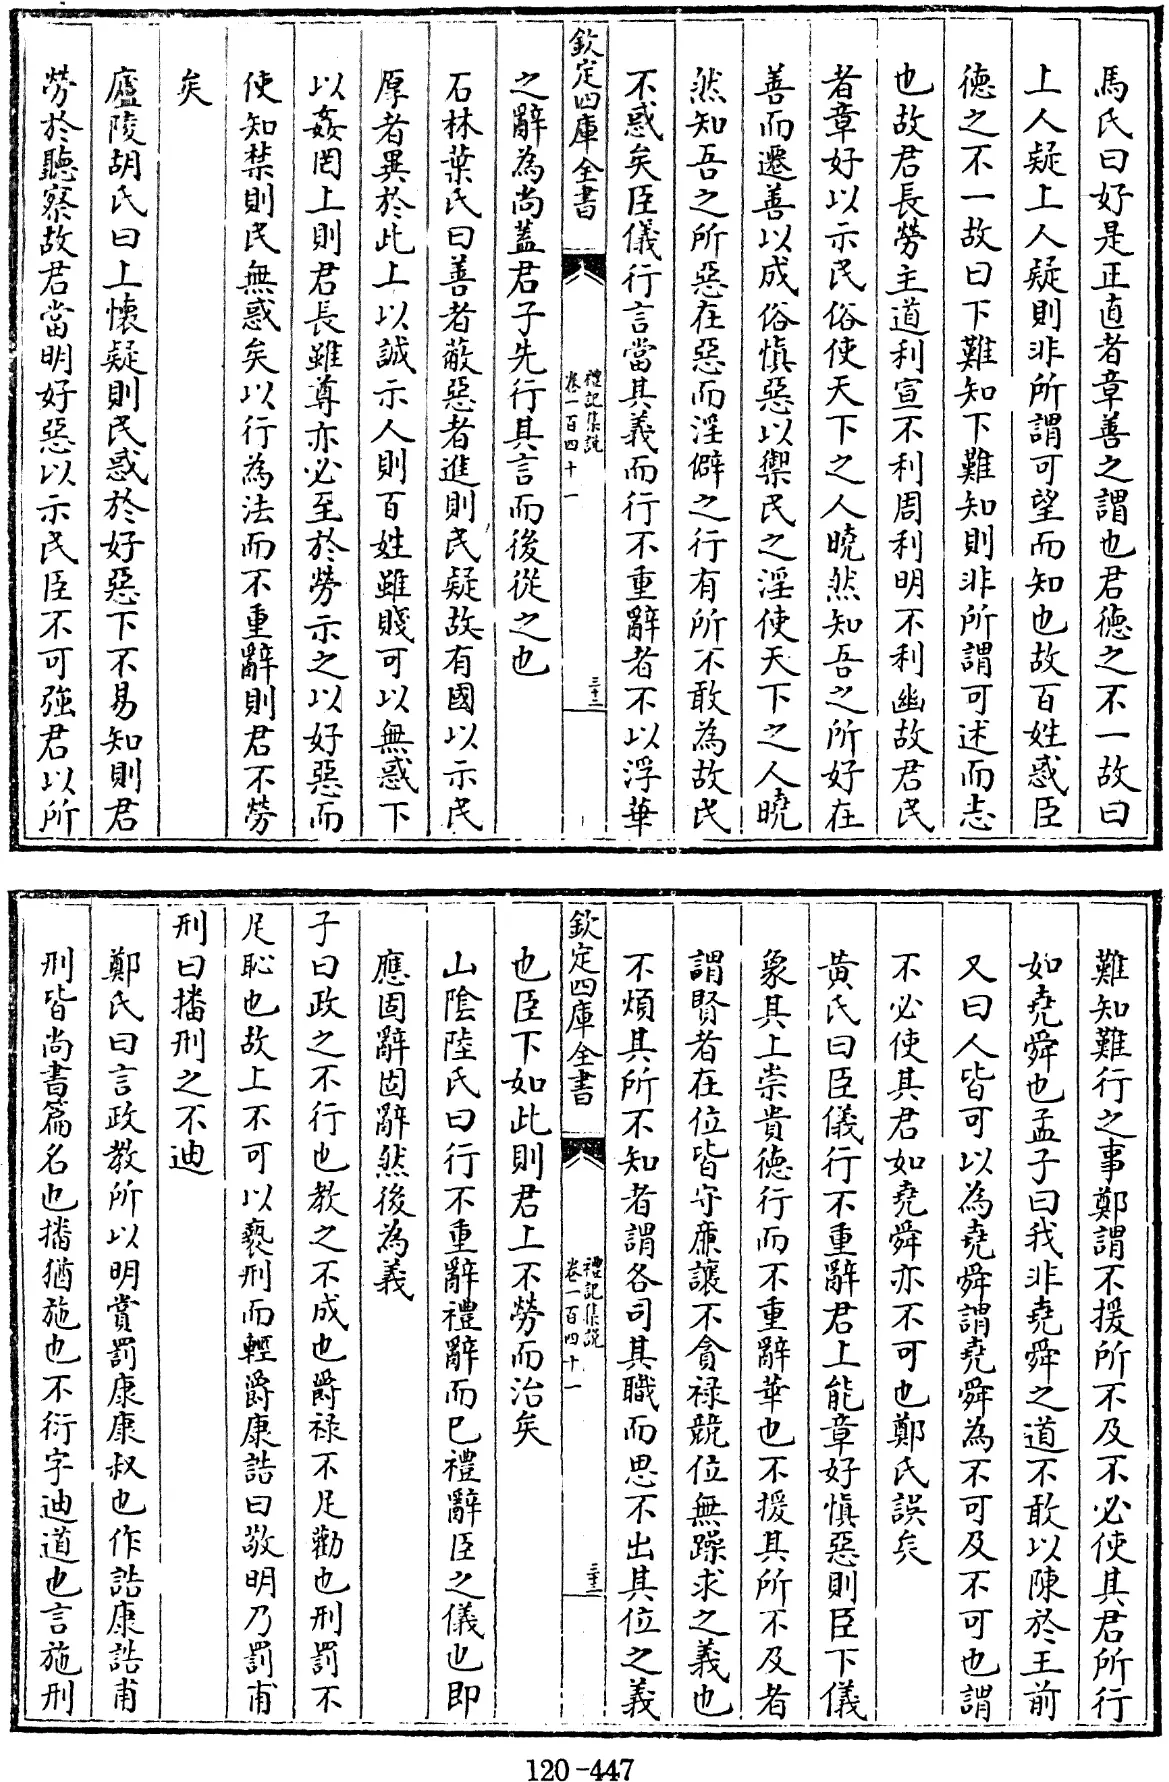 馬氏曰好是正直者章善之謂也君德之不一故曰
上人疑上人疑則非所謂可望而知也故百姓惑臣
德之不一故曰下難知下難知則非所謂可述而志
也故君長勞主道利宣不利周利明不利幽故君民
者章好以示民俗使天下之人曉然知吾之所好在
善而遷善以成俗慎惡以禦民之淫使天下之人曉
然知吾之所惡在惡而淫僻之行有所不敢為故民
不惑矣臣儀行言當其義而行不重辭者不以浮華
欽定四庫全書
禮記集說
卷一百四十一
三十二
之辭為尚葢君子先行其言而後從之也
石林葉氏曰善者蔽惡者進則民疑故有國以示民
厚者異於此上以誠示人則百姓雖賤可以無惑下
以姦罔上則君長雖尊亦必至於勞示之以好惡而
使知禁則民無惑矣以行為法而不重辭則君不勞
矣
廬陵胡氏曰上懷疑則民惑於好惡下不易知則君
勞於聽察故君當明好惡以示民臣不可強君以所
難知難行之事鄭謂不援所不及不必使其君所行
如堯舜也孟子曰我非堯舜之道不敢以陳於王前
又曰人皆可以為堯舜謂堯舜為不可及不可也謂
不必使其君如堯舜亦不可也鄭氏誤矣
黃氏曰臣儀行不重辭君上能章好慎惡則臣下儀
象其上崇貴德行而不重辭華也不援其所不及者
謂賢者在位皆守廉讓不貪祿競位無躁求之義也
不煩其所不知者謂各司其職而思不出其位之義
欽定四庫全書
禮記集說
卷一百四十一
三十三
也臣下如此則君上不勞而治矣
山陰陸氏曰行不重辭禮辭而已禮辭臣之儀也即
應固辭固辭然後為義
子曰政之不行也教之不成也爵祿不足勸也刑罰不
足恥也故上不可以褻刑而輕爵康誥曰敬明乃罰甫
刑曰播刑之不迪
鄭氏曰言政教所以明賞罰康康叔也作誥康誥甫
刑皆尚書篇名也播猶施也不衍字迪道也言施刑
120-447